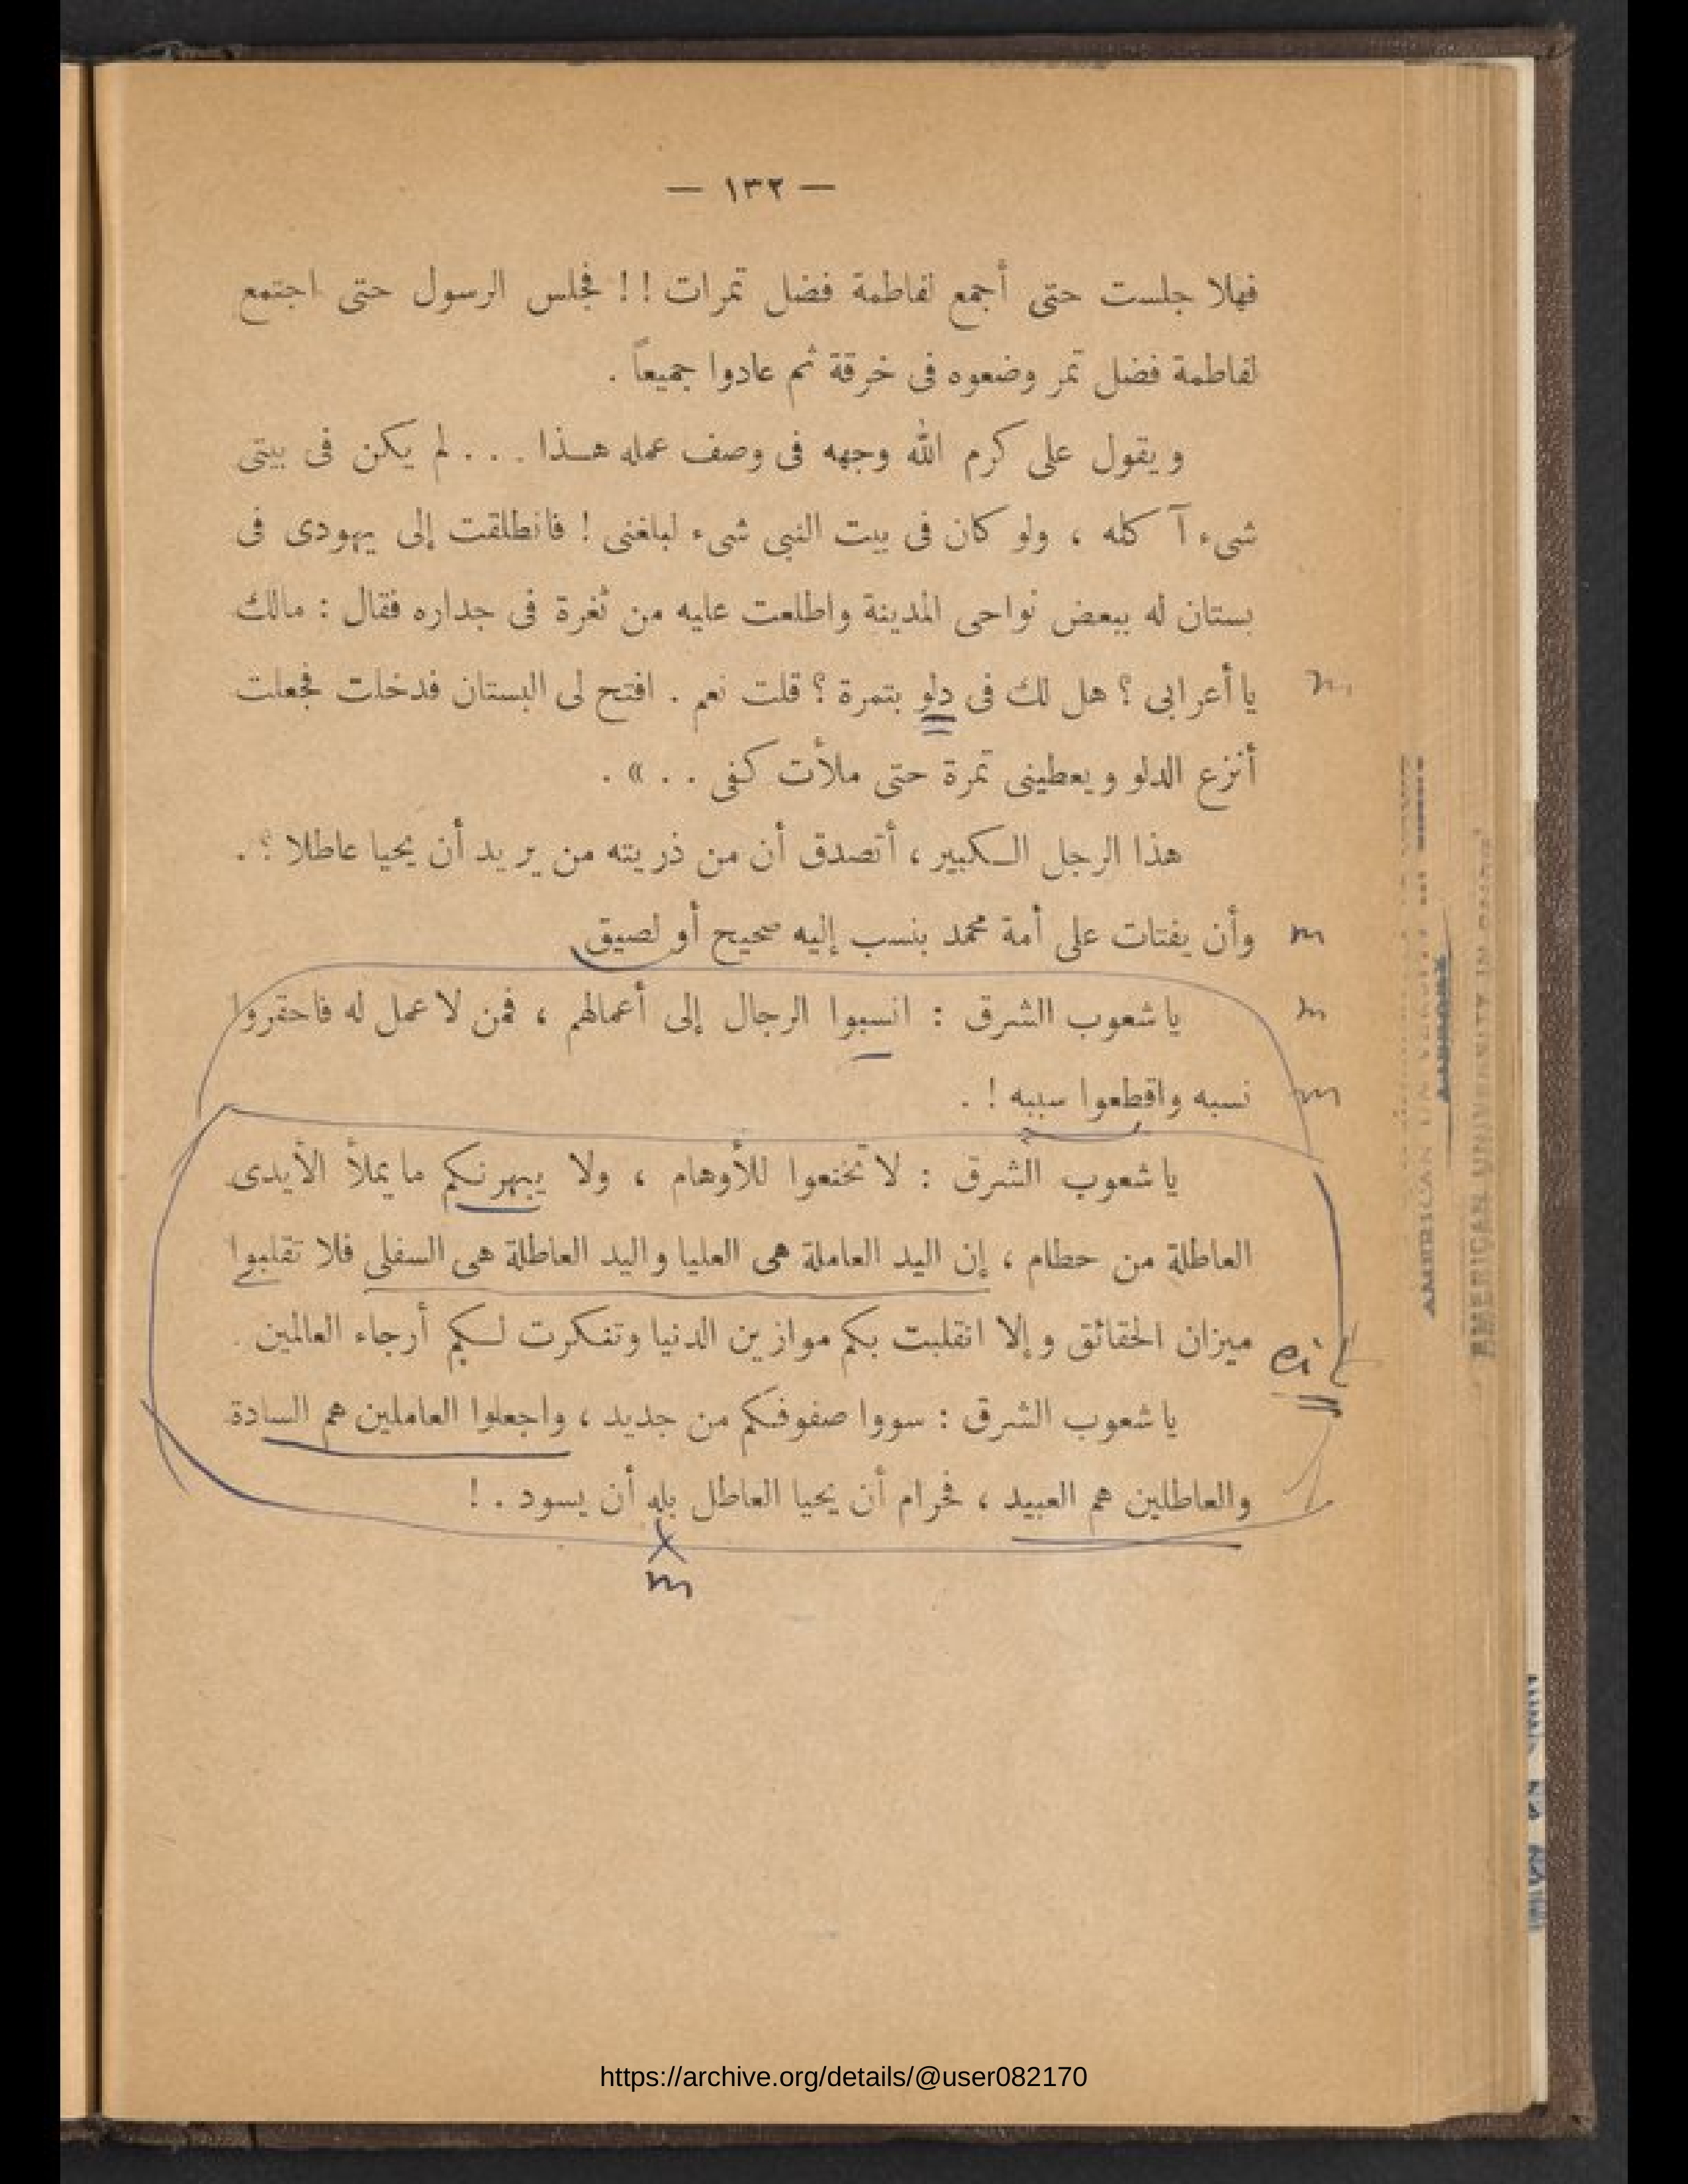 — ١٣٢ —
فهلا جلست حتى أجمع لفاطمة فضل تمرات !! فجلس الرسول حتى اجتمع
لفاطمة فضل تمر وضعوه فى خرقة ثم عادوا جميعاً .
ويقول على كرم الله وجهه فى وصف عمله هـذا . . . لم يكن فى بيتى
شىء آكله ، ولو كان فى بيت النبى شىء لبلغنى ! فانطلقت إلى يهودى فى
بستان له ببعض نواحى المدينة واطلعت عليه من ثغرة فى جداره فقال : مالك
يا أعرابى ؟ هل لك فى دلو بتمرة ؟ قلت نعم . افتح لى البستان فدخلت فجعلت
أنزع الدلو ويعطينى تمرة حتى ملأت كفى . . » .
هذا الرجل الـكبير ، أتصدق أن من ذريته من يريد أن يحيا عاطلا ؟ .
وأن يفتات على أمة محمد بنسب إليه صحيح أو لصيق
يا شعوب الشرق : انسبوا الرجال إلى أعمالهم ، فمن لا عمل له فاحقروا
نسبه واقطعوا سببه ! .
يا شعوب الشرق : لا تخنعوا للأوهام ، ولا يبهرنكم ما يملأ الأيدى
العاطلة من حطام ، إن اليد العاملة هى العليا واليد العاطلة هى السفلى فلا تقلبوا
ميزان الحقائق وإلا انقلبت بكم موازين الدنيا وتنكرت لـكم أرجاء العالمين .
يا شعوب الشرق : سووا صفوفكم من جديد ، واجعلوا العاملين هم السادة
والعاطلين هم العبيد ، فحرام أن يحيا العاطل بله أن يسود . !
AMERICAN UNIVERSITY IN CAIRO
LIBRARY
https://archive.org/details/@user082170